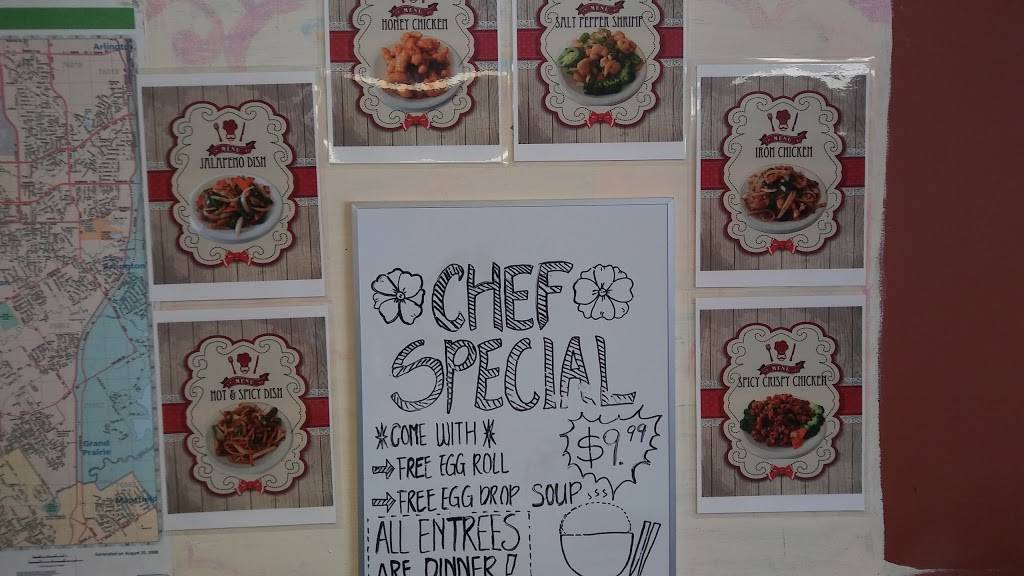 MENU
HONEY CHICKEN
MENU
SALT PEPPER SHRIMP
MENU
JALAPENO DISH
MENU
IRON CHICKEN
MENU
HOT & SPICY DISH
MENU
SPICY CRISPY CHICKEN
CHEF
SPECIAL
$9.99
*COME WITH*
⇒FREE EGG ROLL
⇒FREE EGG DROP SOUP
ALL ENTREES
ARE DINNER!
Grand
Prairie